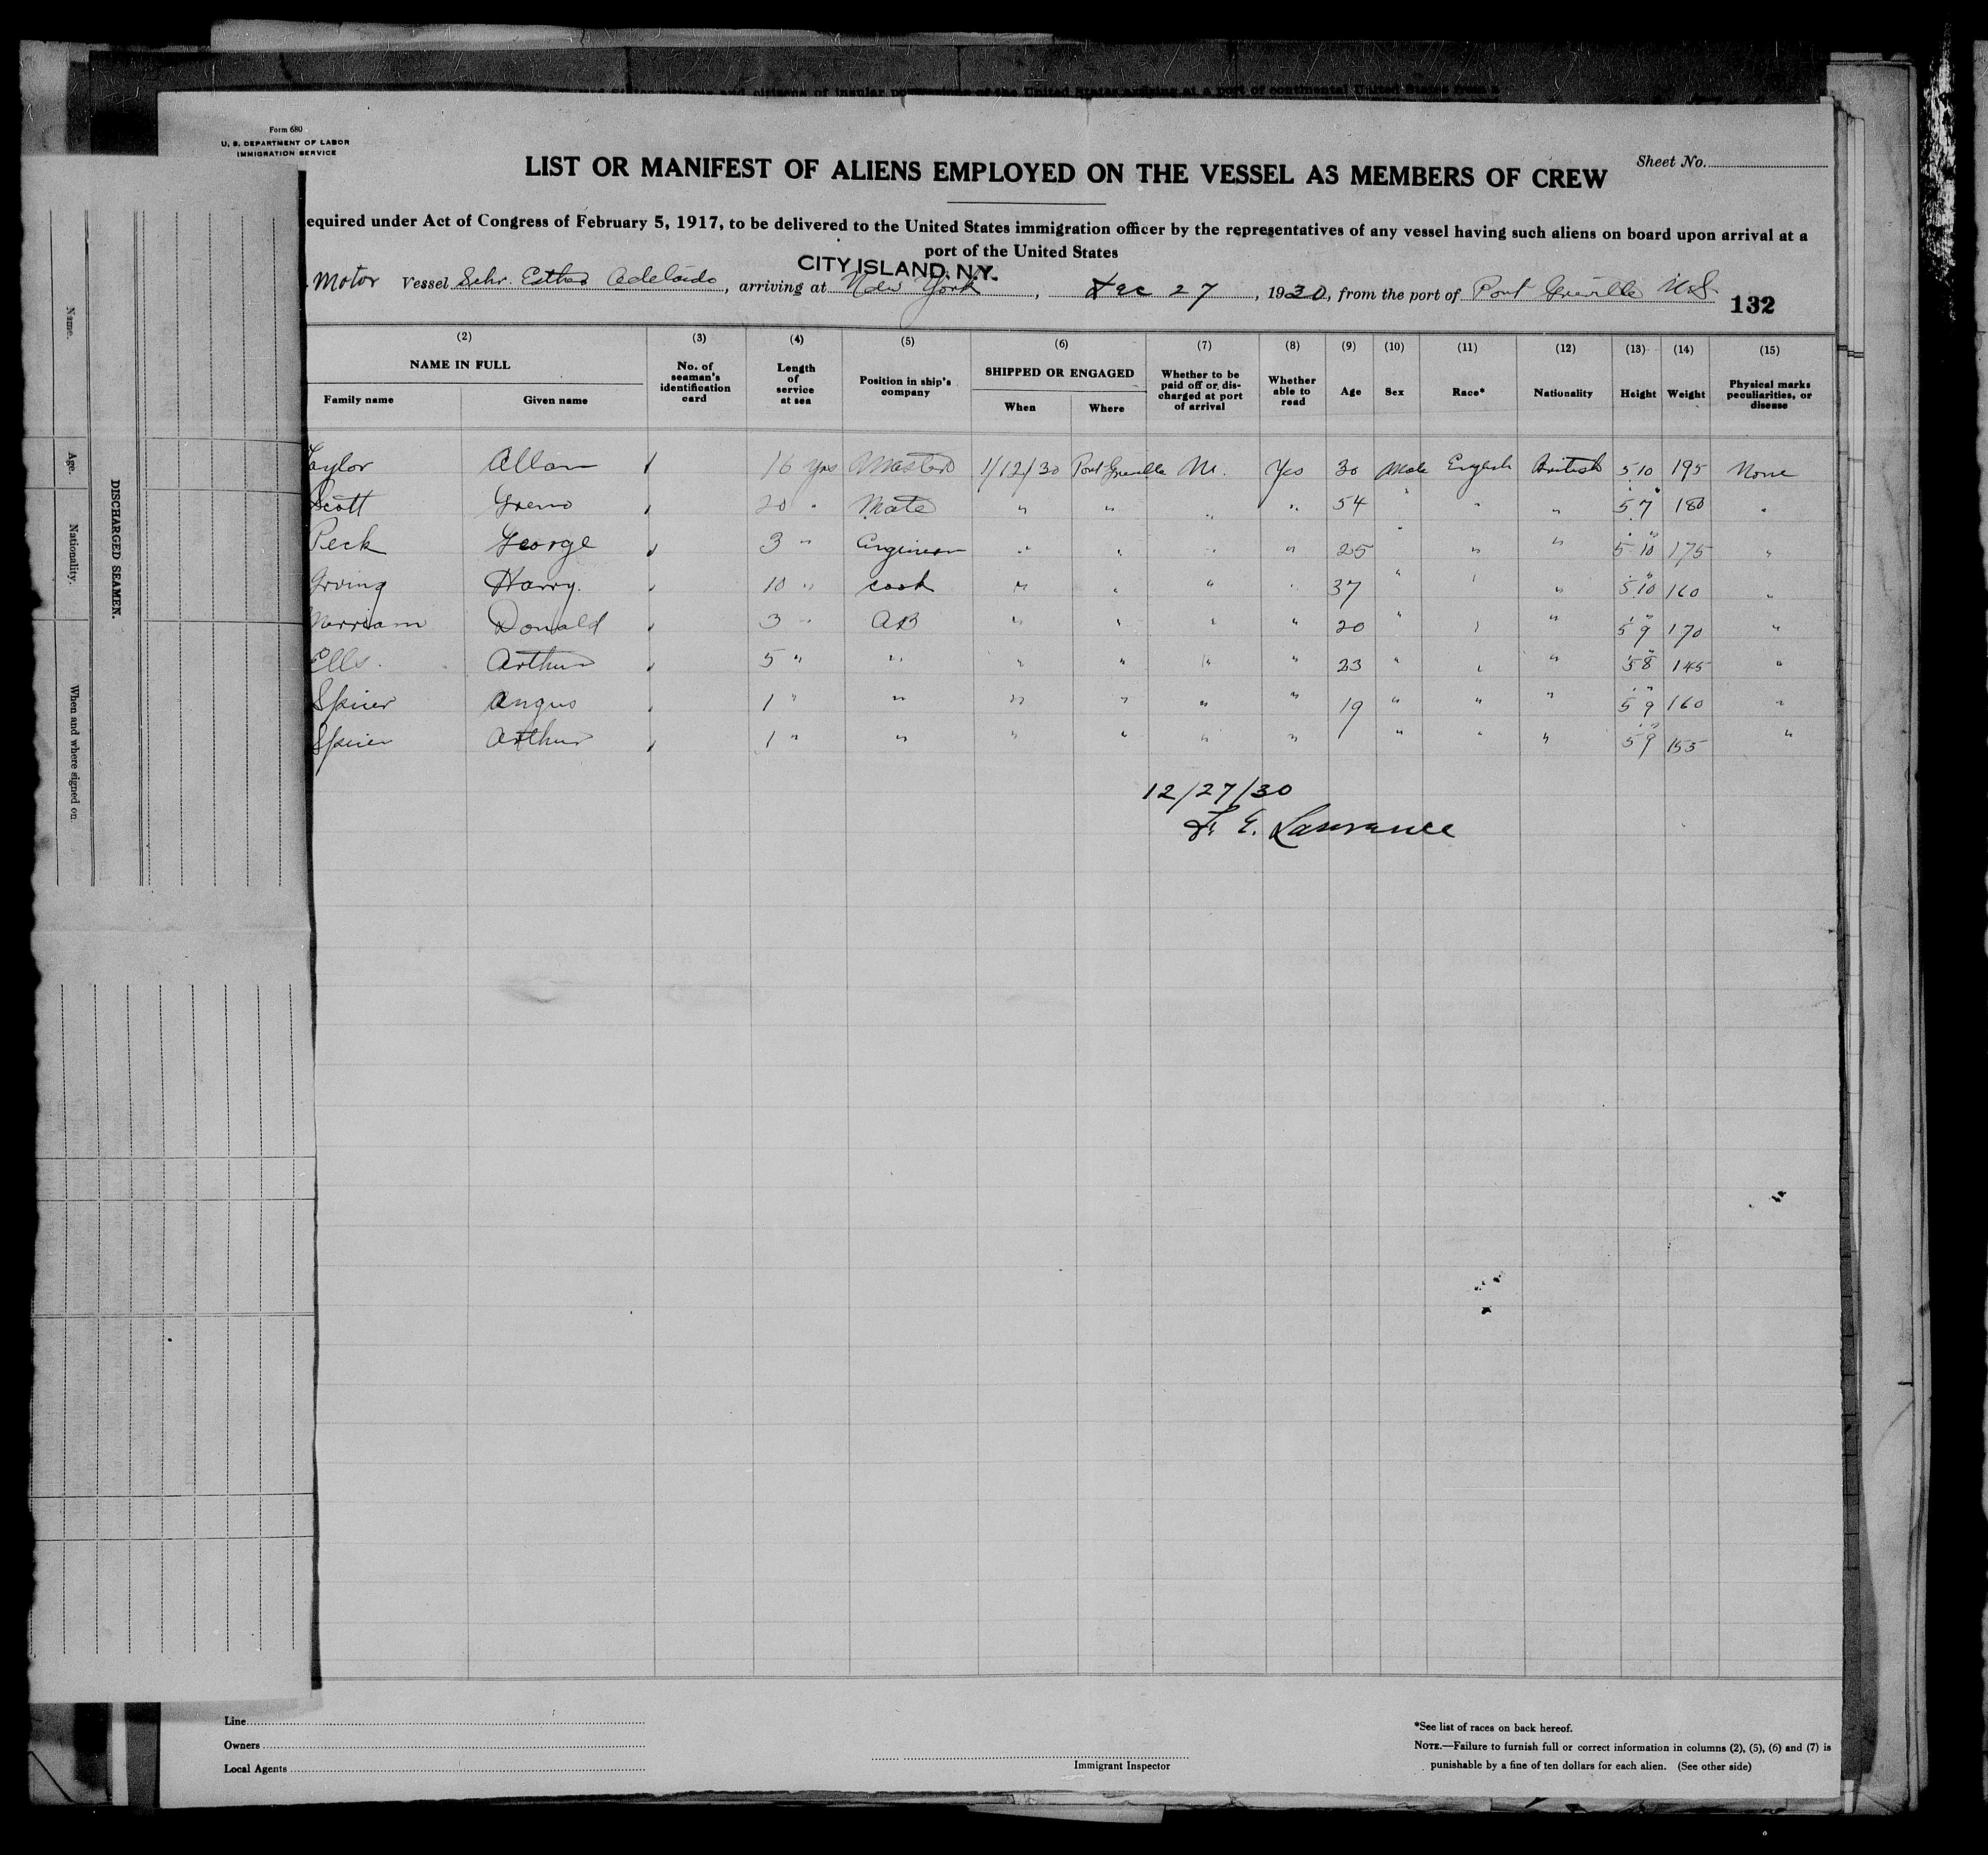 Form 680
U. S. DEPARTMENT OF LABOR
IMMIGRATION SERVICE
Sheet No.
LIST OR MANIFEST OF ALIENS EMPLOYED ON THE VESSEL AS MEMBERS OF CREW
equired under Act of Congress of February 5, 1917, to be delivered to the United States immigration officer by the representatives of any vessel having such aliens on board upon arrival at a
port of the United States
CITY ISLAND, N.Y.
Motor Vessel Schr. Esther Adelaide, arriving at New York, Dec 27, 1930, from the port of Port Greville N.S.
132
(2) (3) (4) (5) (6) (7) (8) (9) (10) (11) (12) (13) (14) (15)
NAME IN FULL No. of seaman's identification card Length of service at sea Position in ship's company SHIPPED OR ENGAGED Whether to be paid off or discharged at port of arrival Whether able to read Age Sex Race* Nationality Height Weight Physical marks peculiarities, or disease
Family name Given name When Where
Taylor Allan 16 yrs Master 1/12/30 Port Greville No. Yes 30 Male English British 5 10 195 None
Scott 20 " Mate " " " " 54 " " " 5 7 180 "
Peck George 3 " Engineer " " " " 25 " " " 5 10 175 "
Irving Harry. 10 " cook " " " " 37 " " " 5 10 160 "
Merriam Donald 3 " AB " " " " 20 " " " 5 9 170 "
Ells. Arthur 5 " " " " " " 23 " " " 5 8 145 "
Spicer Angus 1 " " " " " " 19 " " " 5 9 160 "
Spicer Arthur 1 " " " " " " " " " 5 9 155 "
12/27/30
E. Lawrance
DISCHARGED SEAMEN.
Name.
Age.
Nationality.
When and where signed on.
Line
Owners
Local Agents
Immigrant Inspector
*See list of races on back hereof.
NOTE.—Failure to furnish full or correct information in columns (2), (5), (6) and (7) is
punishable by a fine of ten dollars for each alien. (See other side)